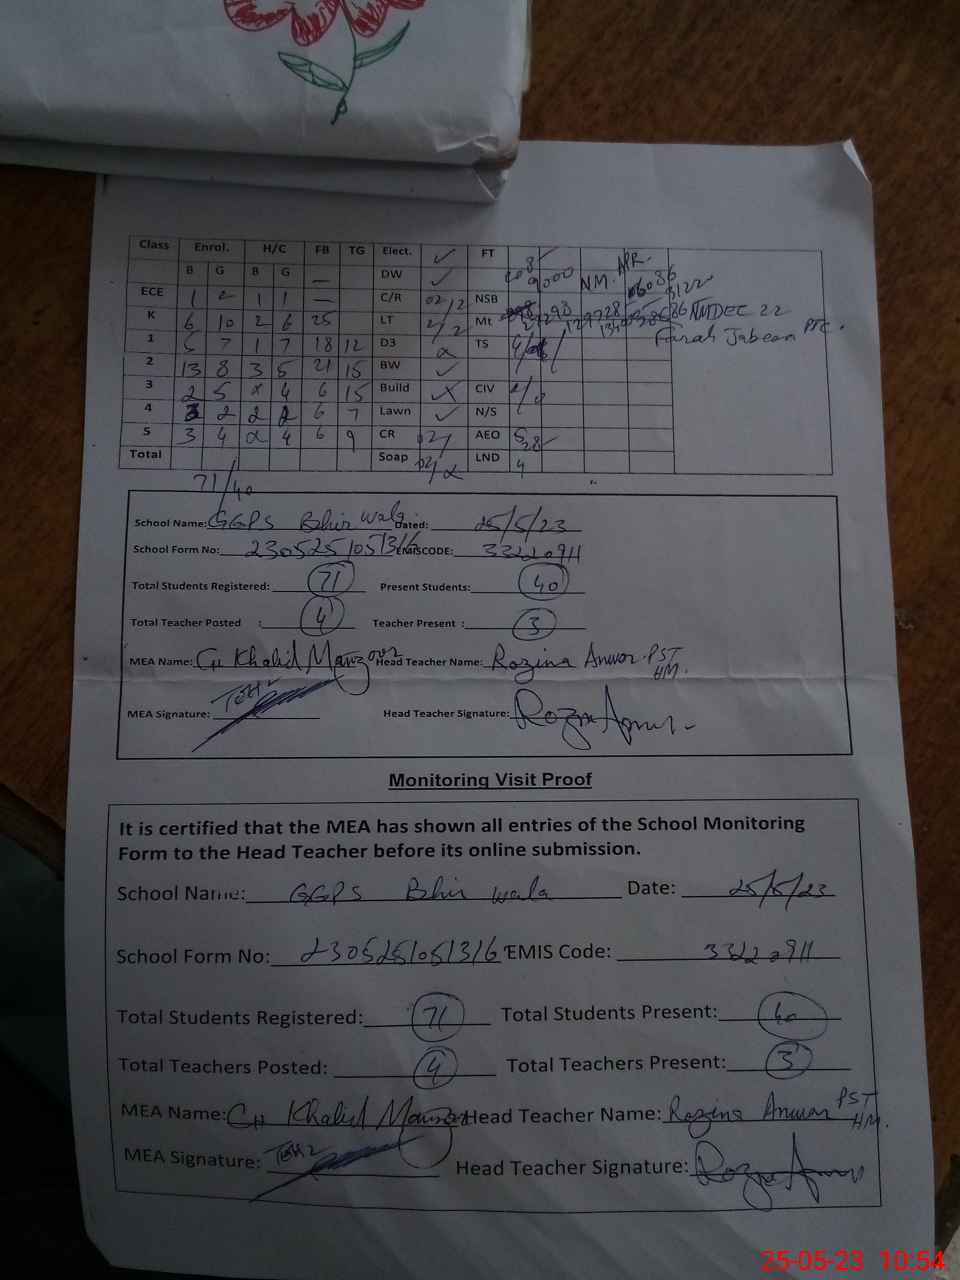 Class Enrol. H/C FB TG Elect. ✓ FT
B G B G — DW ✓ 9000 NM. APR.
ECE 1 2 1 1 — C/R 02/12 NSB
K 6 10 2 6 25 LT 2/2 Mt NMDEC 22
1 7 1 7 18 12 D3 TS Farah Jabeen PTC.
2 13 8 3 5 21 15 BW ✓
3 2 5 x 4 6 15 Build X CIV
4 3 2 2 2 6 7 Lawn ✓ N/S
5 3 4 4 6 9 CR 02/ AEO
Total Soap LND 4
71/40
School Name: GGPS Bhir wala Dated: 25/5/23
School Form No: 2305251051316 EMISCODE: 33220911
Total Students Registered: 71 Present Students: 40
Total Teacher Posted : 4 Teacher Present : 3
MEA Name: CH Khalid Manzoor Head Teacher Name: Rozina Anwar PST
HM.
MEA Signature: Head Teacher Signature: Rozina Anwar
Monitoring Visit Proof
It is certified that the MEA has shown all entries of the School Monitoring
Form to the Head Teacher before its online submission.
School Name: GGPS Bhir wala Date: 25/5/23
School Form No: 2305251051316 EMIS Code: 33220911
Total Students Registered: 71 Total Students Present: 40
Total Teachers Posted: 4 Total Teachers Present: 3
MEA Name: CH Khalid Manzoor Head Teacher Name: Rozina Anwar PST
HM.
MEA Signature: Head Teacher Signature: Rozina Anwar
25-05-23 10:54